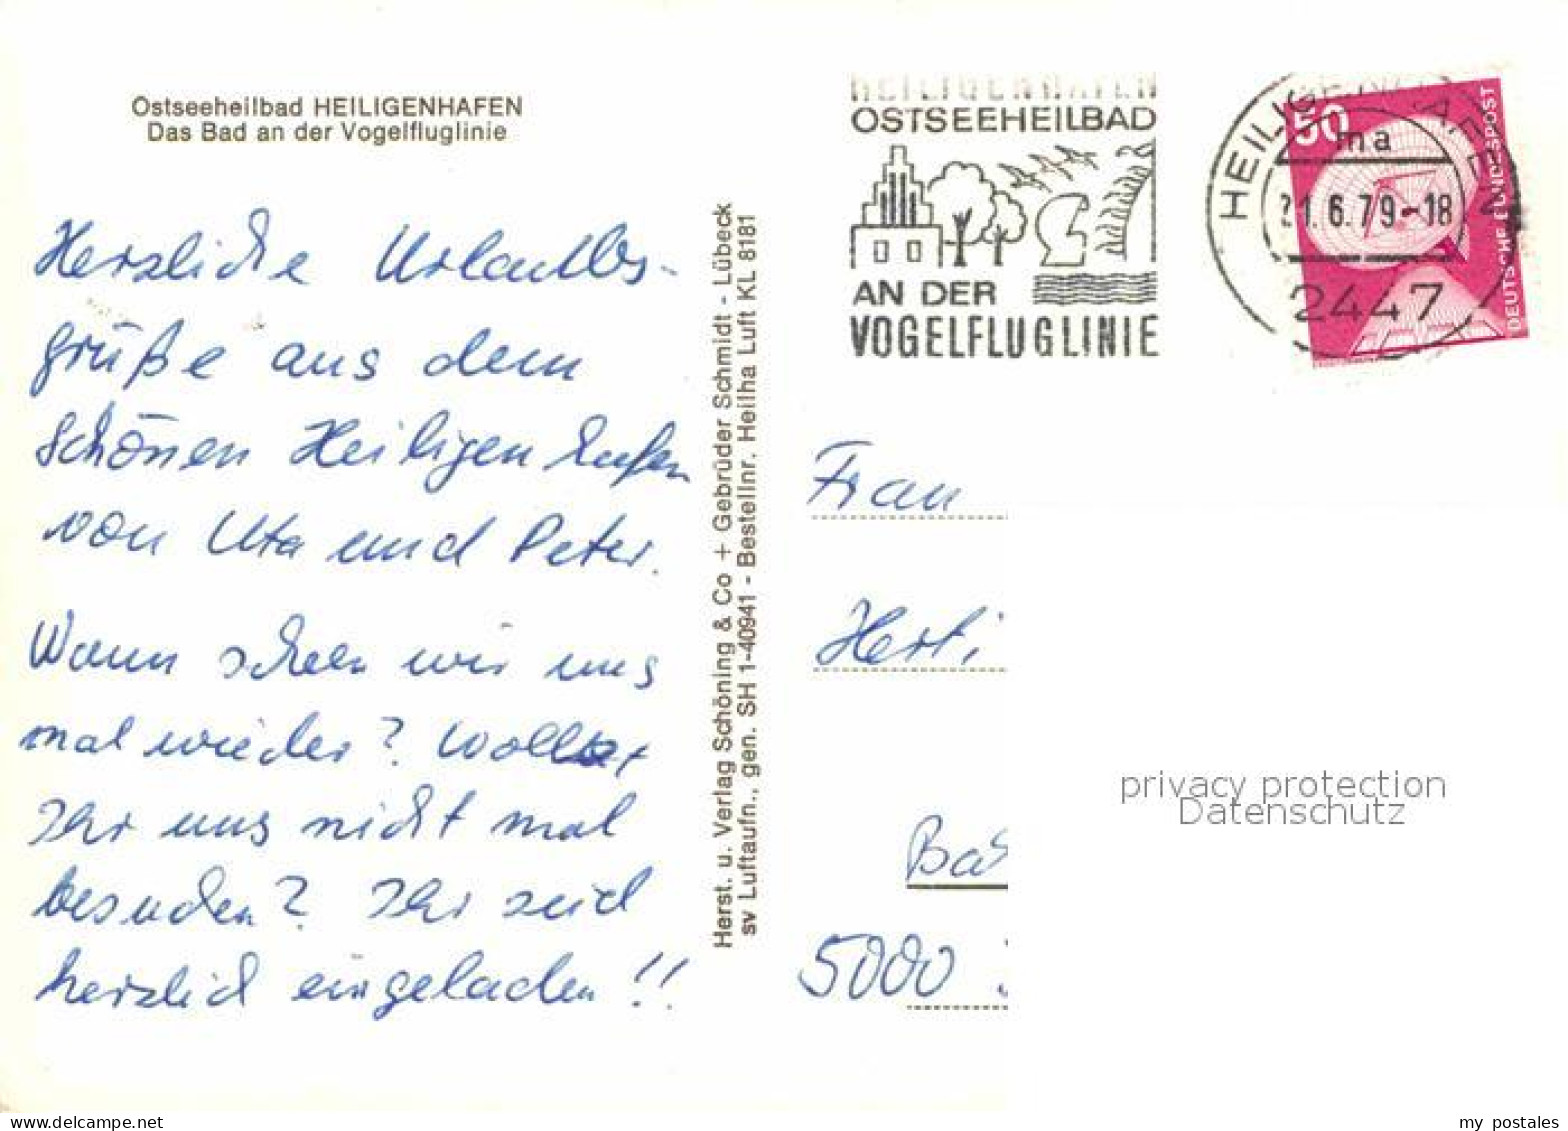 Ostseeheilbad HEILIGENHAFEN
Das Bad an der Vogelfluglinie
Herzliche Urlaubs-
grüße aus dem
schönen Heiligenhafen
von Uta und Peter.
Wann sehen wir uns
mal wieder? Wollt
Ihr uns nicht mal
besuchen? Ihr seid
herzlich eingeladen!!
Herst. u. Verlag Schöning & Co + Gebrüder Schmidt - Lübeck
sv Luftaufn., gen. SH 1-40941 - Bestellnr. Heilha Luft KL 8181
HEILIGENHAFEN
OSTSEEHEILBAD
AN DER
VOGELFLUGLINIE
HEILIGENHAFEN
ma
21.6.79-18
2447
50
DEUTSCHE BUNDESPOST
Frau
5000
privacy protection
Datenschutz
my postales